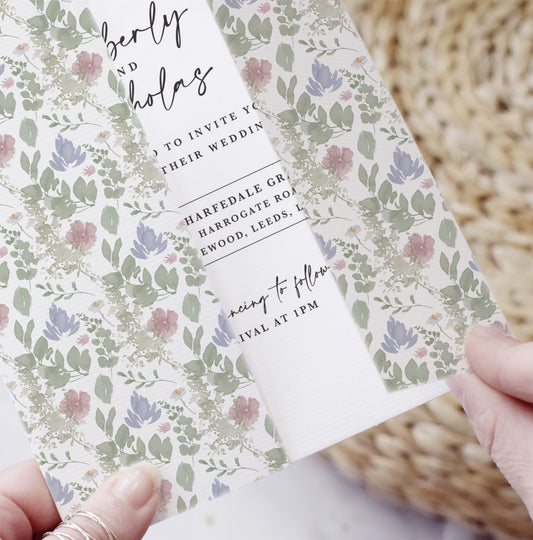 berly
ND
holas
D TO INVITE YO
THEIR WEDDIN
HARFEDALE GR
HARROGATE ROA
EWOOD, LEEDS, L
ncing to follow
IVAL AT 1PM